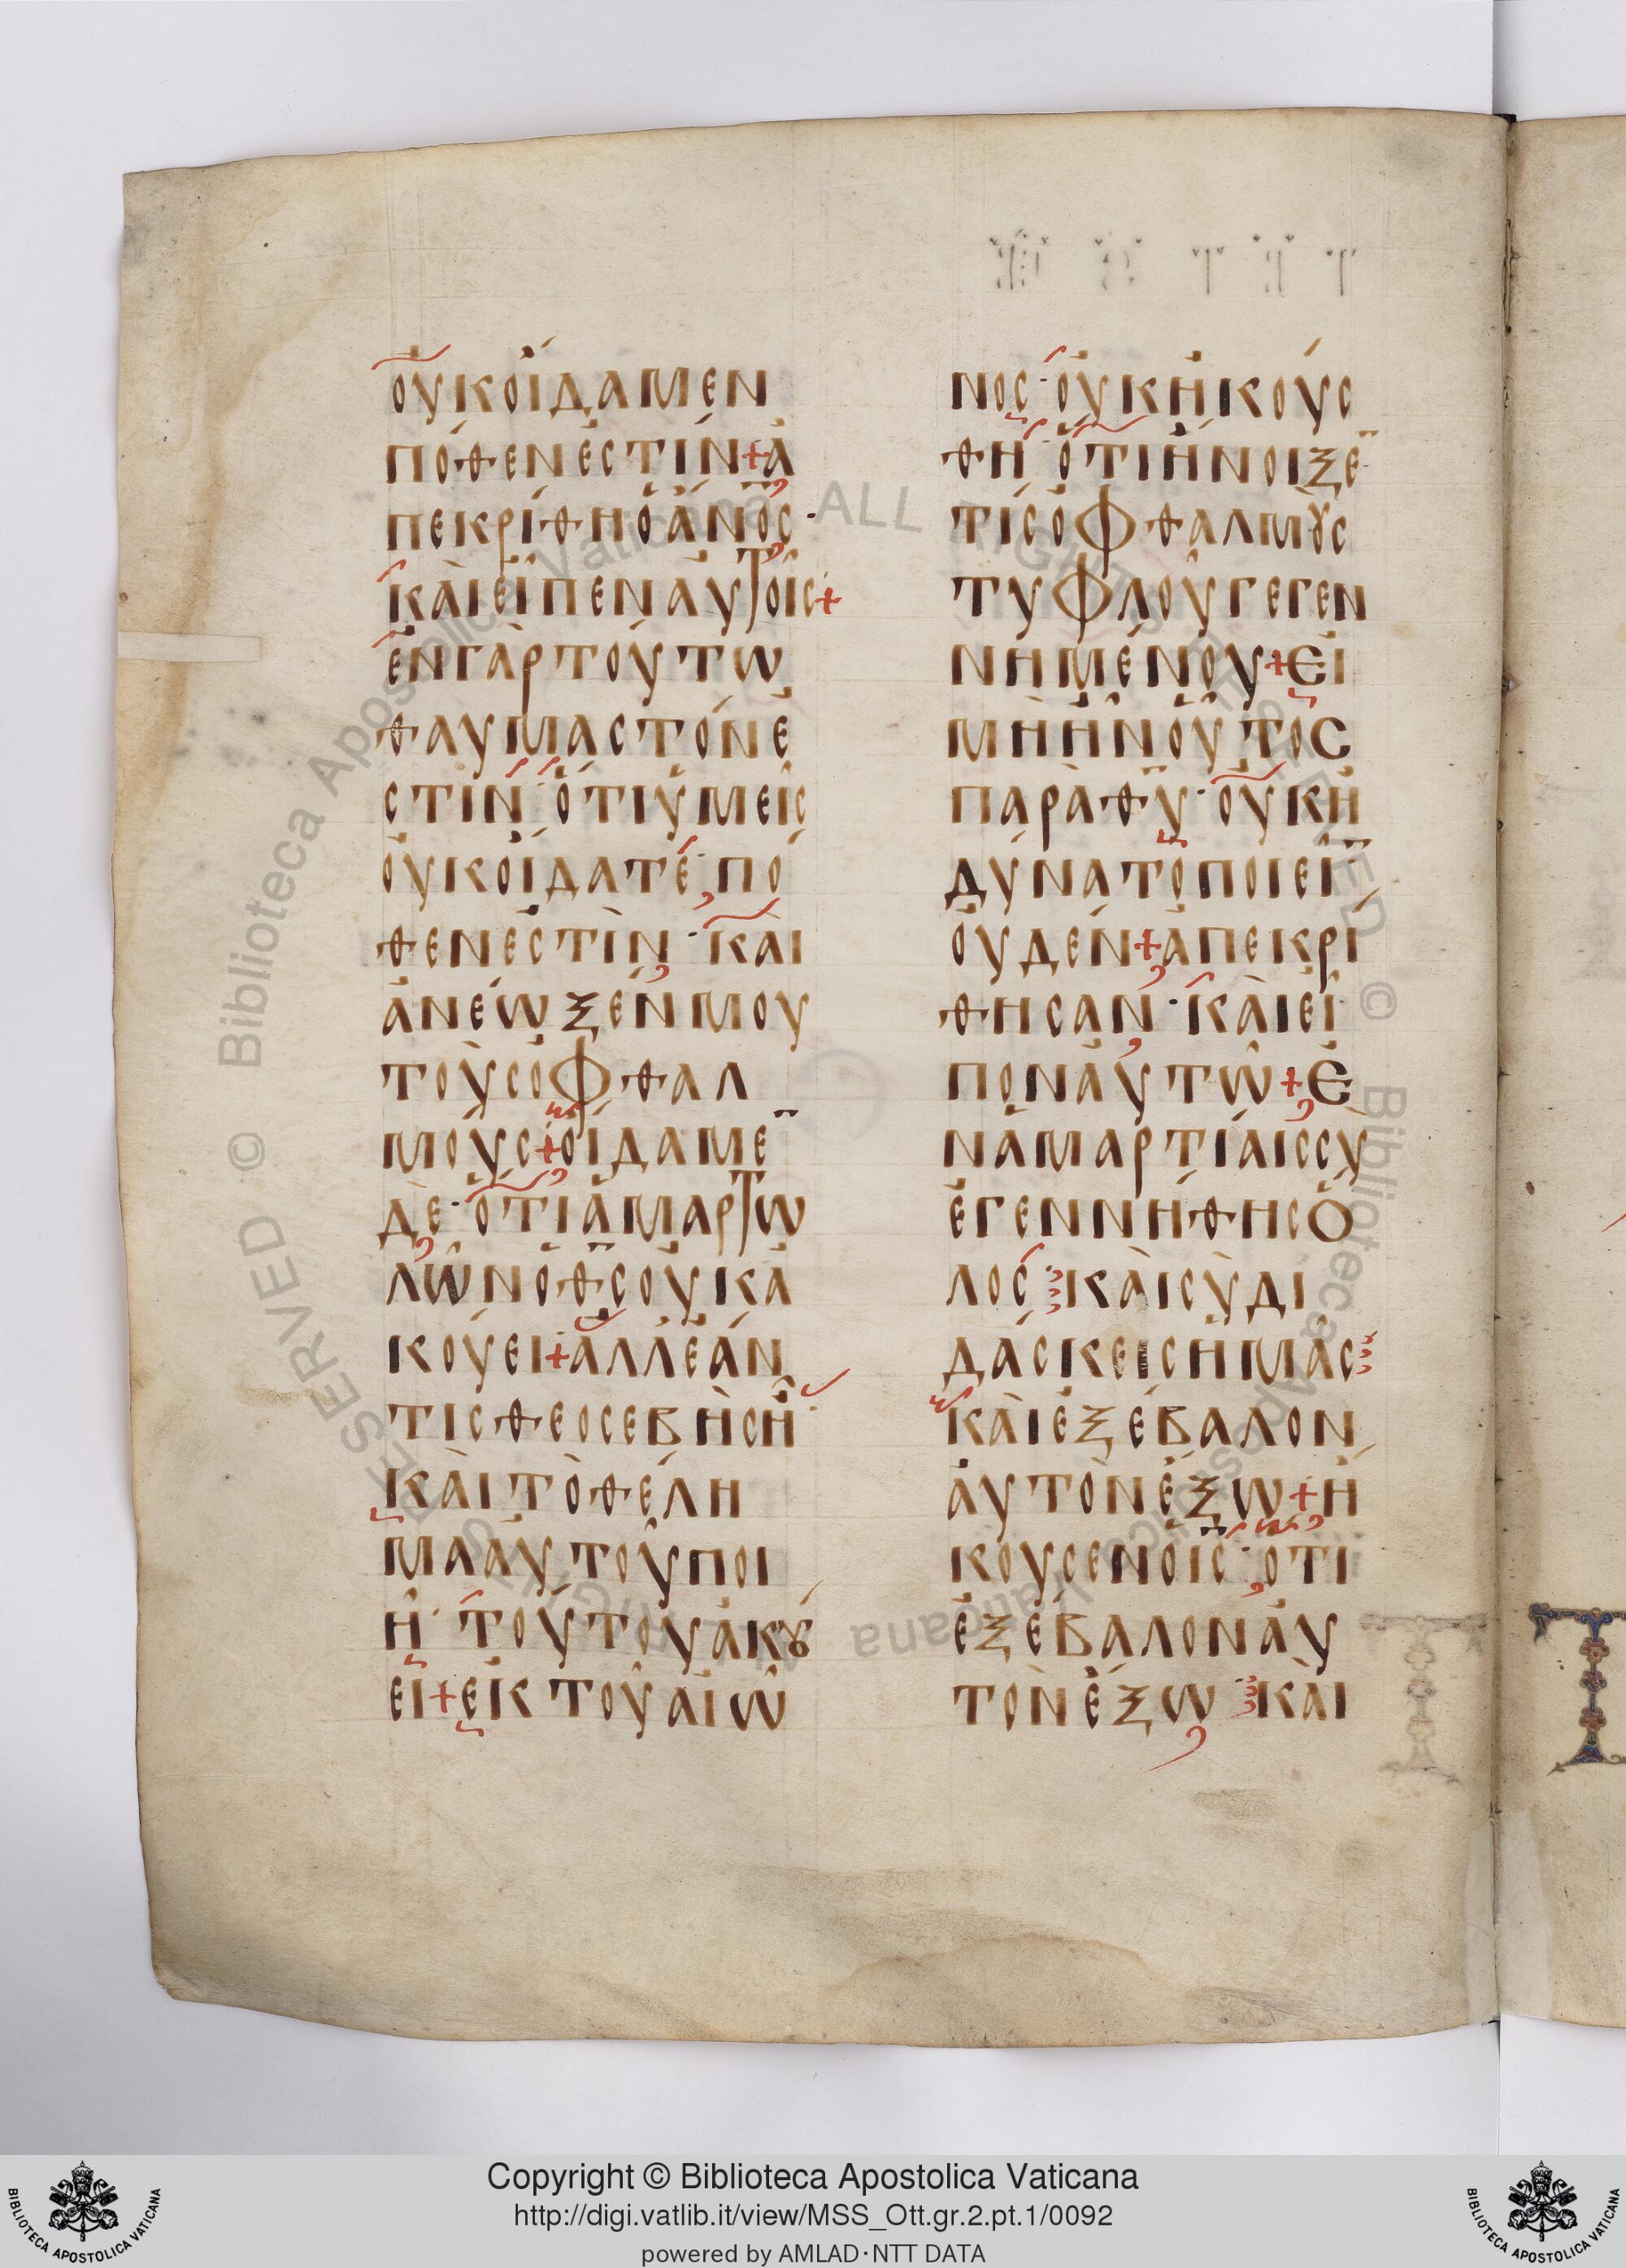 ΟΥΚΟΙΔΑΜΕΝ
ΠΟΘΕΝΕΣΤΙΝ+Α
ΠΕΚΡΙΘΗΟΑΝΟΣ·
ΚΑΙΕΙΠΕΝΑΥΤΟΙΣ+
ΕΝΓΑΡΤΟΥΤΩ
ΘΑΥΜΑΣΤΟΝΕ
ΣΤΙΝ·ΟΤΙΥΜΕΙΣ
ΟΥΚΟΙΔΑΤΕ·ΠΟ
ΘΕΝΕΣΤΙΝ·ΚΑΙ
ΑΝΕΩΞΕΝΜΟΥ
ΤΟΥΣΟΦΘΑΛ
ΜΟΥΣ+ΟΙΔΑΜΕ̅
ΔΕ·ΟΤΙΑΜΑΡΤΩ
ΛΩΝΟΘ̅ΣΟΥΚΑ
ΚΟΥΕΙ+ΑΛΛΕΑΝ
ΤΙΣΘΕΟΣΕΒΗΣΗ·
ΚΑΙΤΟΘΕΛΗ
ΜΑΑΥΤΟΥΠΟΙ
Η·ΤΟΥΤΟΥΑΚȢ
ΕΙ+ΕΚΤΟΥΑΙΩ
ΝΟΣ·ΟΥΚΗΚΟΥΣ
ΘΗ·ΟΤΙΗΝΟΙΞΕ̅
ΤΙΣΟΦΘΑΛΜȢΣ
ΤΥΦΛΟΥΓΕΓΕΝ
ΝΗΜΕΝΟΥ+ΕΙ
ΜΗΗΝΟΥΤΟΣ
ΠΑΡΑΘΥ̅·ΟΥΚΗ
ΔΥΝΑΤΟΠΟΙΕΙ̅
ΟΥΔΕΝ+ΑΠΕΚΡΙ
ΘΗΣΑΝ·ΚΑΙΕΙ
ΠΟΝΑΥΤΩ+Ε
ΝΑΜΑΡΤΙΑΙΣΣΥ
ΕΓΕΝΝΗΘΗΣΟ
ΛΟΣ·ΚΑΙΣΥΔΙ
ΔΑΣΚΕΙΣΗΜΑΣ
ΚΑΙΕΞΕΒΑΛΟΝ
ΑΥΤΟΝΕΞΩ+Η
ΚΟΥΣΕΝΟΙΣ·ΟΤΙ
ΕΞΕΒΑΛΟΝΑΥ
ΤΟΝΕΞΩ·ΚΑΙ
Τ
Biblioteca Apostolica Vaticana ALL RIGHTS RESERVED ©
Copyright © Biblioteca Apostolica Vaticana
http://digi.vatlib.it/view/MSS_Ott.gr.2.pt.1/0092
powered by AMLAD·NTT DATA
BIBLIOTECA APOSTOLICA VATICANA
BIBLIOTECA APOSTOLICA VATICANA